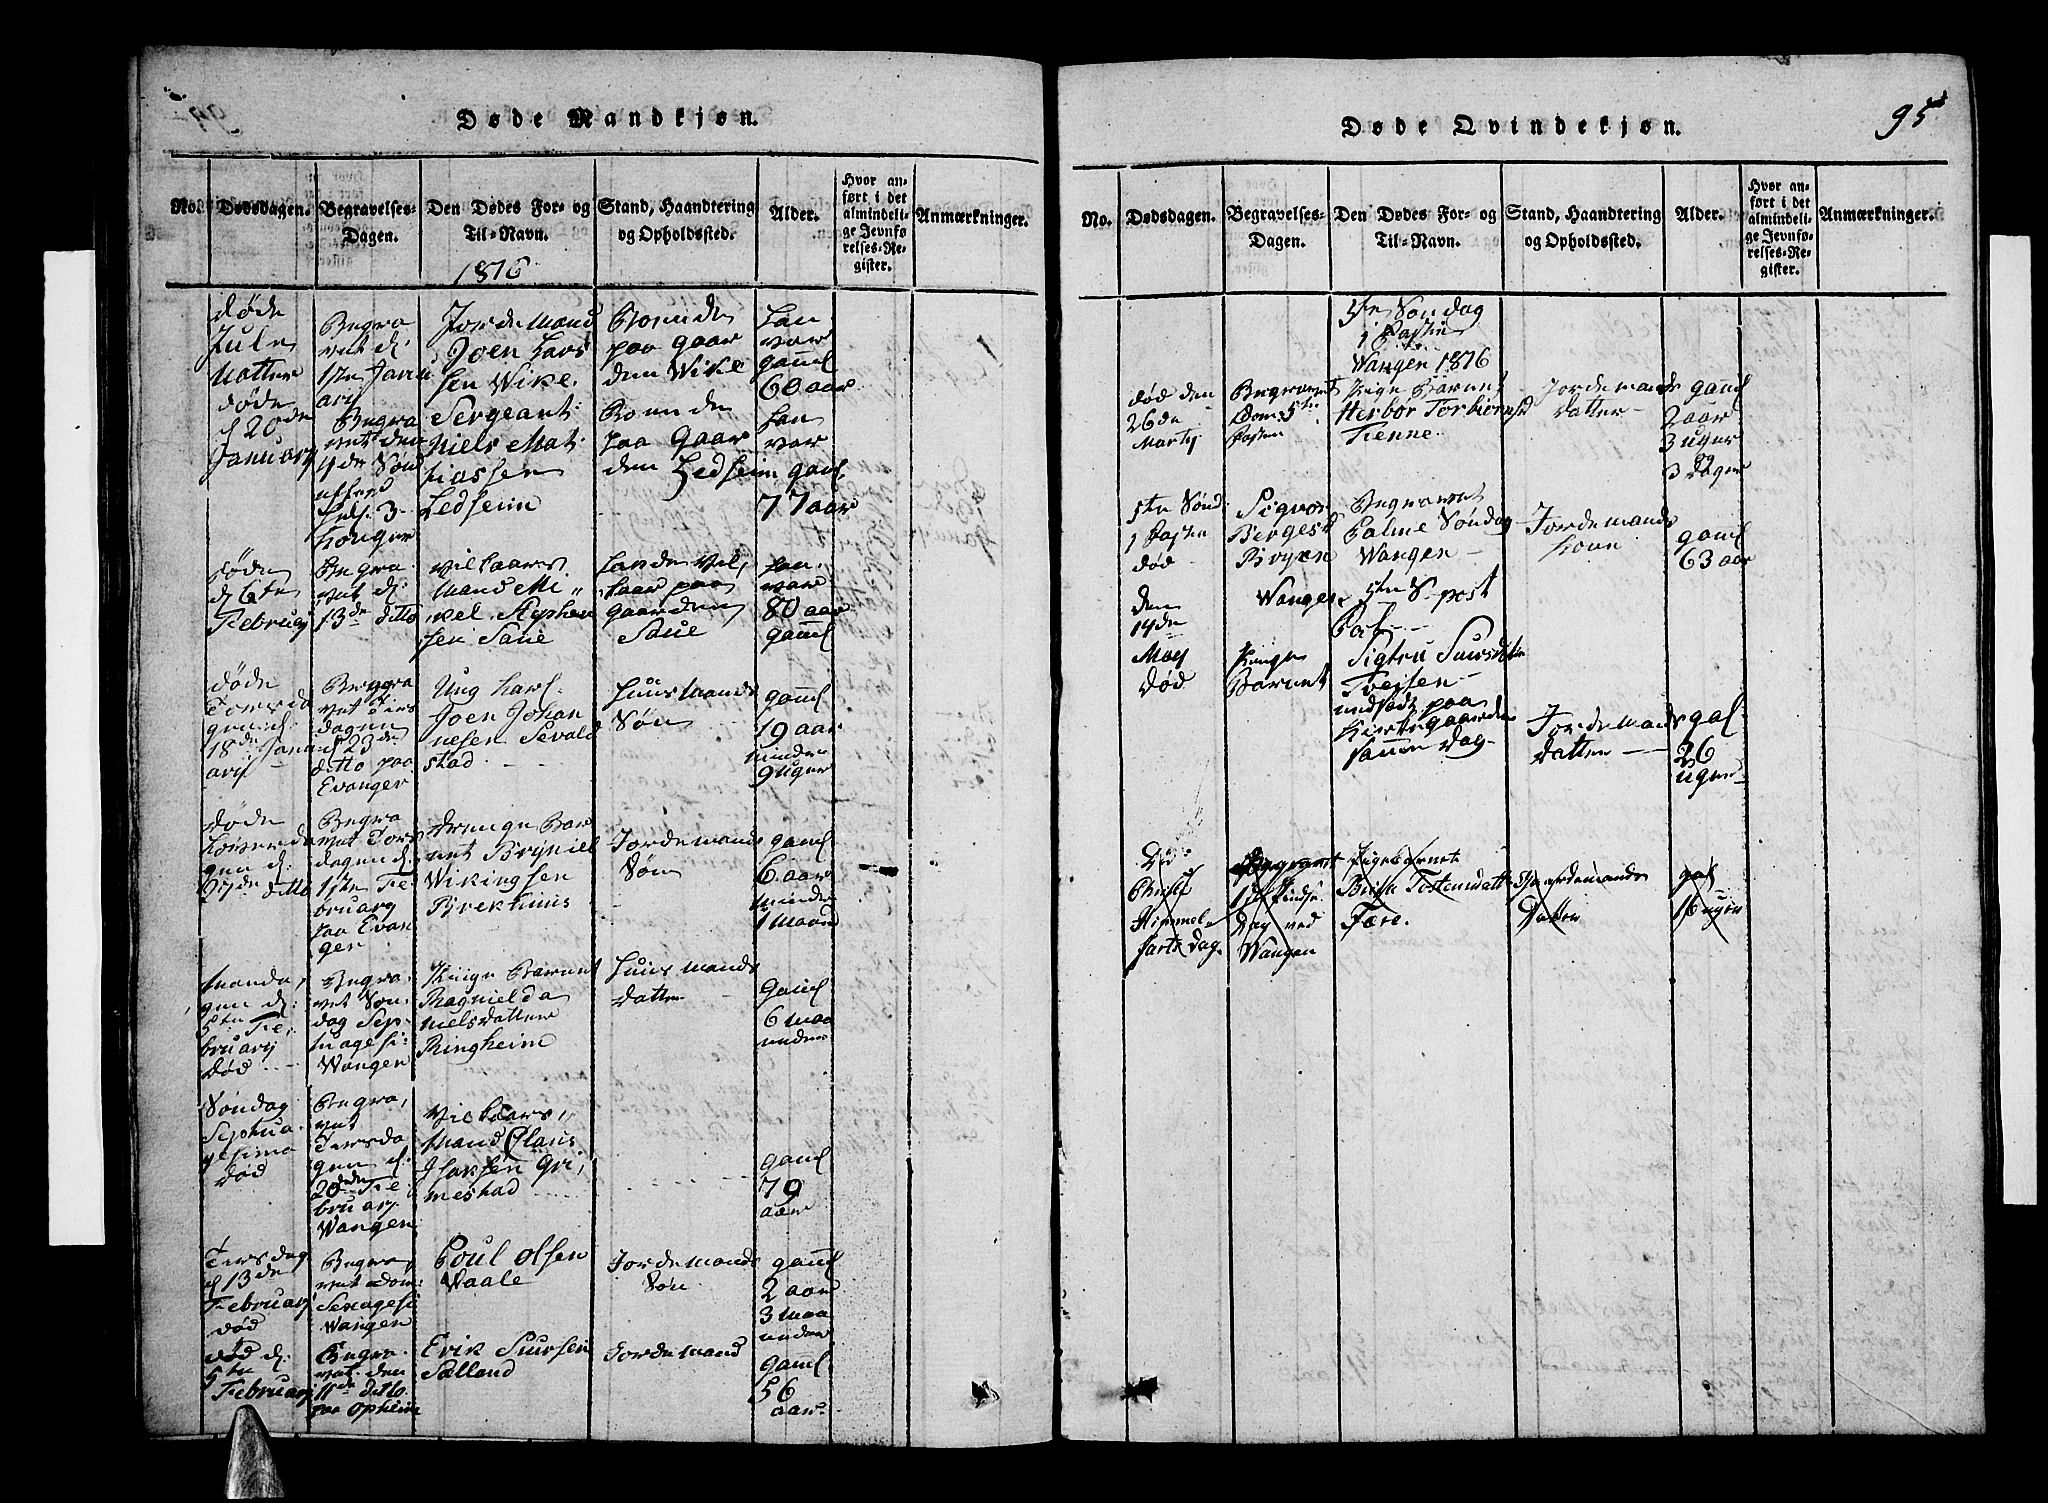 Døde Mandkjøn.
No.
Dødsdagen.
Begravelses-
Dagen.
Den Dødes For- og
Til-Navn.
Stand, Haandtering
og Opholdssted.
Alder.
Hvor an-
ført i det
almindeli-
ge Jevnfø-
relses-Re-
gister.
Anmærkninger.
1816
døde
Jule
Natten
Begra
vet d:
1ste Janu
ary
Jordemand
Joen Lars
sen Wike
Boende
paa Gaar
den Wike
han
var
gaml
60 aar
døde
d 20de
January
Begra
vet den
4de Sønd
3
Konger
Sergeant
Niels Mat
hiassen
Ledseim
Boende
paa Gaar
den Ledseim
han
var
gaml
77 aar
døde
d 6te
February
Begra
vet d:
13de ditto
Vilkaars
Mand Mi
kel Stephen
sen Saue
Vil
kaar paa
gaarden
Saue
han
var
80 aar
gaml
døde
Torsda
gen d
18de Janu
ary
Beggra
vet Tirs
dagen
d 23de
ditto paa
Evanger
Ung Karl
Joen Johan
nesen Sevald
stad
Huusmands
Søn
gaml
19 aar
minder
9 uger
døde
Løverda
gen d:
27de ditto
Begra
vet Tors
dagen d:
1ste Fe
bruary
paa Evan
ger
drenge Bar
net Brynild
Wikingsen
Brekhuus
Jordemands
Søn
gaml
6 aar
minder
1 Maaned
Manda
gen d:
5te Fe
bruary
død
Begra
vet Søn
dag Sep
tuagesi:
Wangen
Piige Barnet
Ragnielda
Nielsdatter
Ringheim
Huusmands
datter
gaml
6 maa
neder
Søndag
Septua
gesima
død
Begra
vet
Tiirsda
gen d.
20de Fe
bruary
Wangen
Vilkaars
Mand Claus
Isaksen Gri
mestad
gaml
79
aar
Tirsdag
d 13de
February
død
Begra
vet Dom:
Sexagesi
Wangen
Poul Olsen
Waale
Jordemands
Søn
gaml
2 aar
3 maa
neder
død d:
5te
February
Begra
vet den
11de ditto
paa Opheim
Erik Siursen
Sælland
Jordemand
gaml
56
aar
Døde Qvindekjøn.
95
No.
Dødsdagen.
Begravelses-
Dagen.
Den Dødes For- og
Til-Navn.
Stand, Haandtering
og Opholdssted.
Alder.
Hvor an-
ført i det
almindeli-
ge Jevnfø-
relses-Re-
gister.
Anmærkninger.
5te Søndag
i Fasten
Wangen 1816
død den
26de
Marty
Begravet
Dom: 5te
Fasten
Pige Barnet
Herbør Torbiørnsd
Tienne
Jordemands
datter
gaml
2 aar
3 uger
og
3 dager
5te Sønd
i Fasten
død
Sigvor
Bergesd
Bryen
Begravet
Palme Søndag
Wangen
Jordemands
kone
gaml
63 aar
Wangen 5te S. post
Pas
den
14de
May
død
Piige
Barnet
Sigtru Siursdatter
Tveiten
nedsadt paa
Kirkegaarden
samme dag
Jordemands
datter
gal
26
uger
Død
Christi
Himmel
farts Dag
Begravet
1ste Pindse
Dag ved
Wangen
Pigebarnet
Brita Tostensdatter
Fære.
Gaardemands
Datter
gal
16 uger